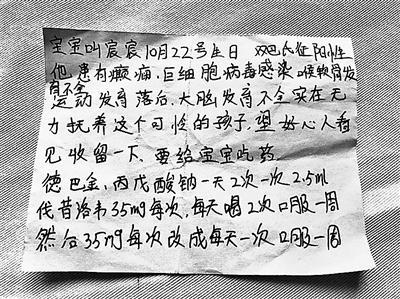 宝宝叫宸宸10月22号生日 双巴氏征阳性
他患有癫痫、巨细胞病毒感染 喉软骨发
育不全
运动发育落后、大脑发育不全实在无
力抚养这个可怜的孩子,望好心人看
见收留一下、要给宝宝吃药
德巴金、丙戊酸钠一天2次一次2.5ml
代昔洛韦35mg每次,每天喝2次口服一周
然后35mg每次改成每天一次口服一周